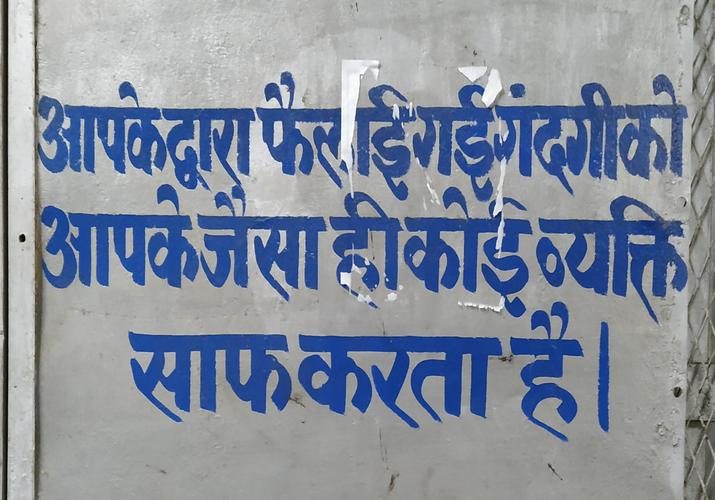 आपके द्वारा फैलाई गई गंदगी को
आपके जैसा ही कोई व्यक्ति
साफ करता है।